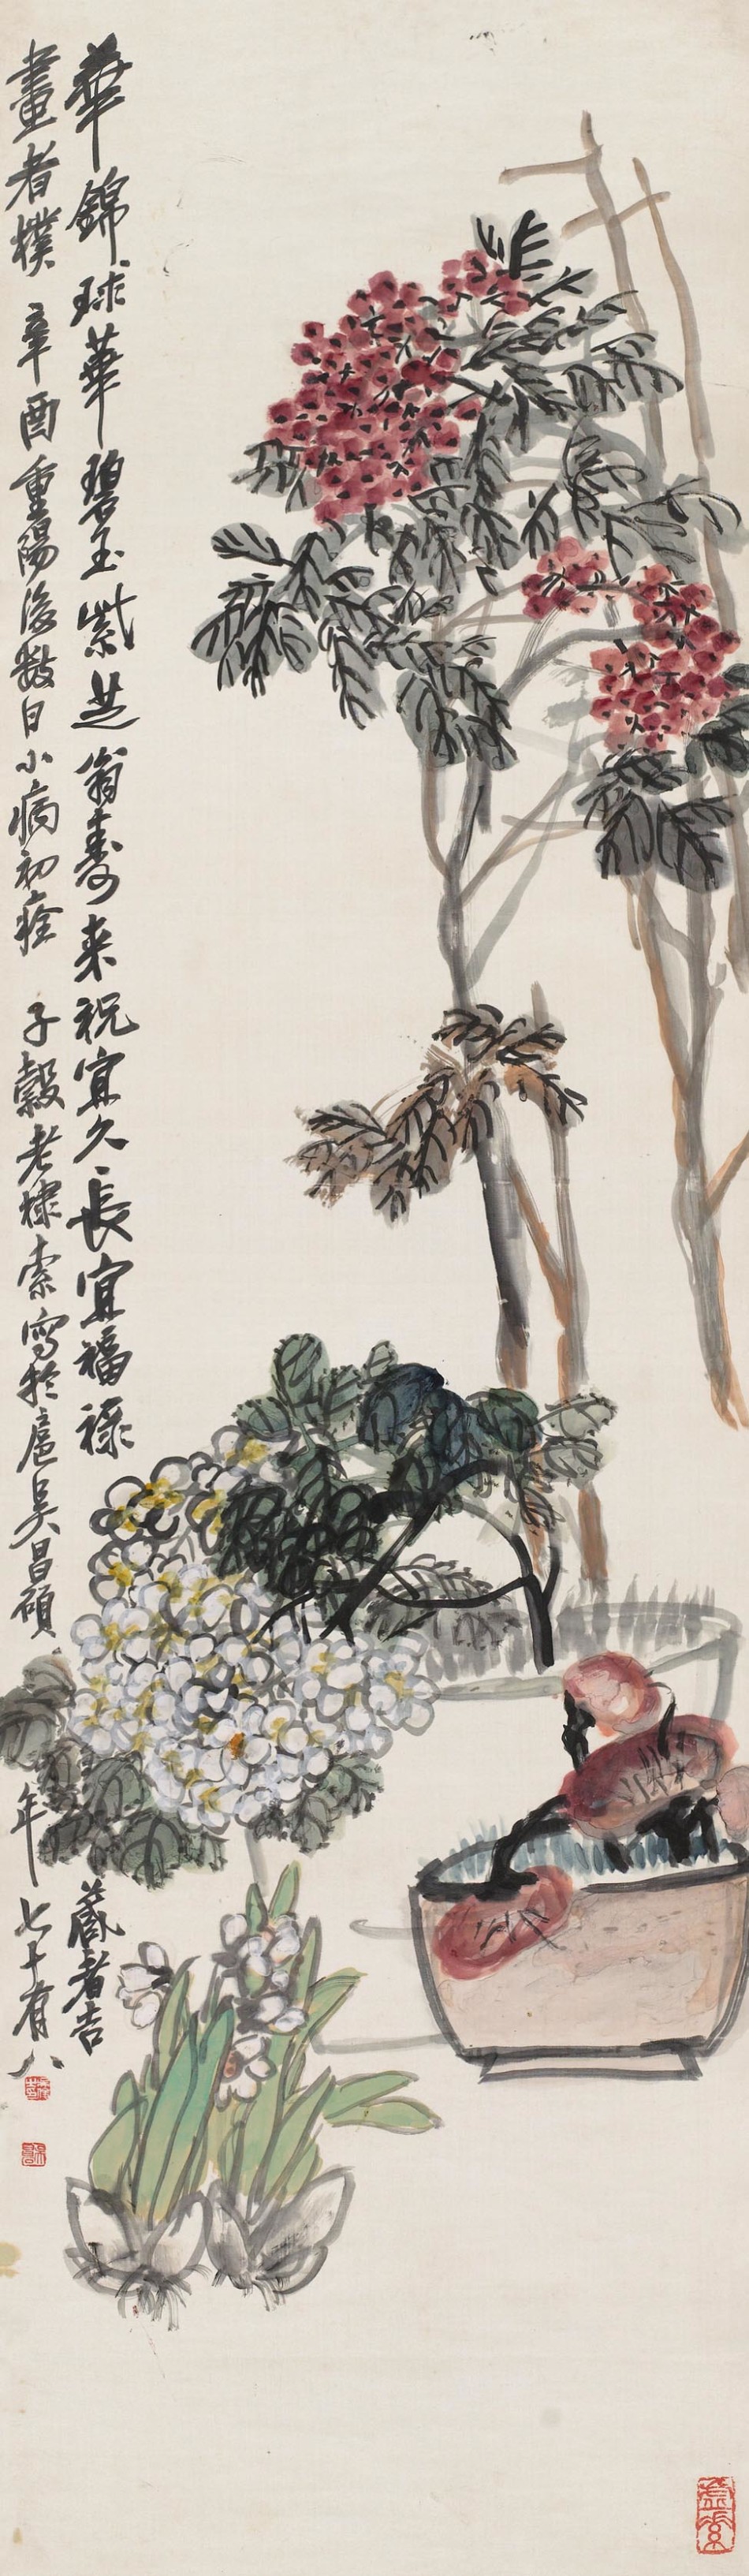 華錦球華碧玉紫芝翁壽来祝宜久長宜福禄藏者吉
畫者樸 辛酉重陽後數日小病初痊 子穀老棣索寫於扈吴昌碩年七十有八